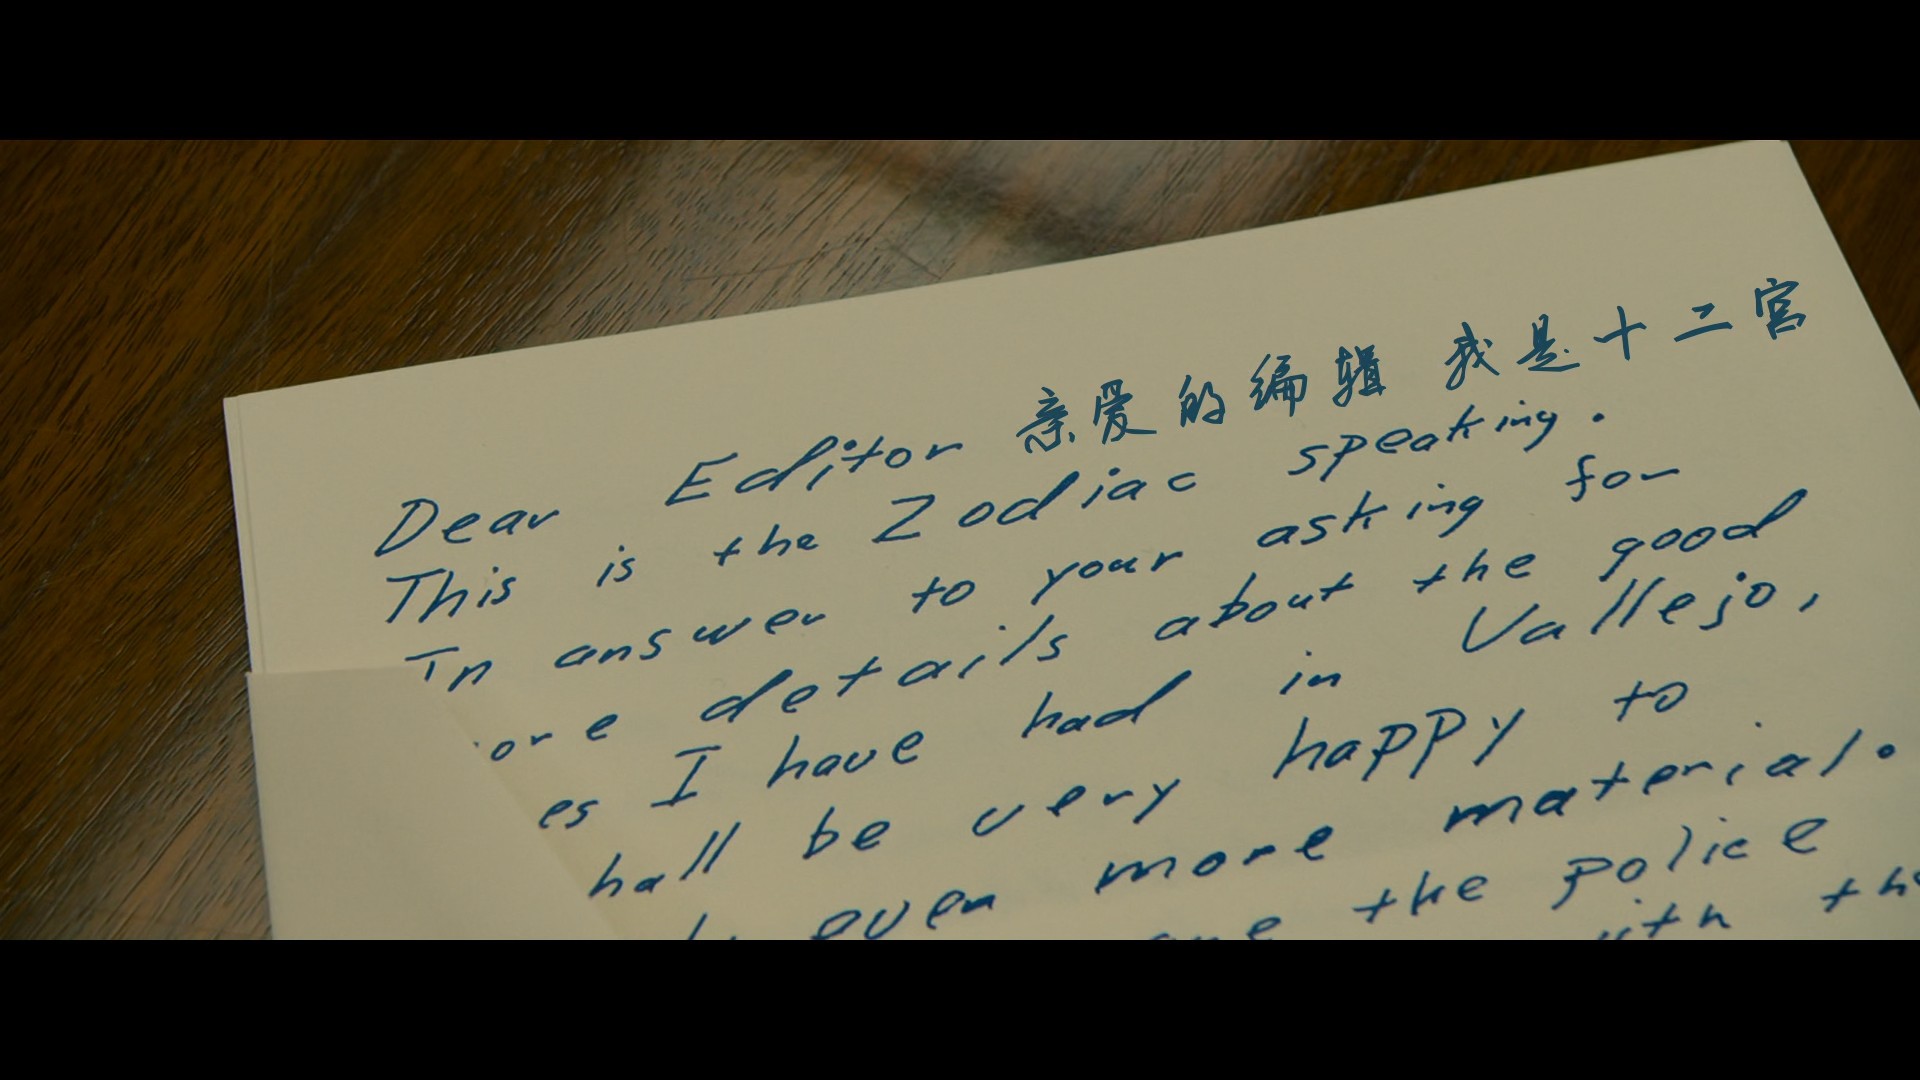 Dear Editor 亲爱的编辑 我是十二宫
This is the Zodiac speaking.
In answer to your asking for
ore details about the good
es I have had in Vallejo,
hall be very happy to
even more material.
the police
ith th